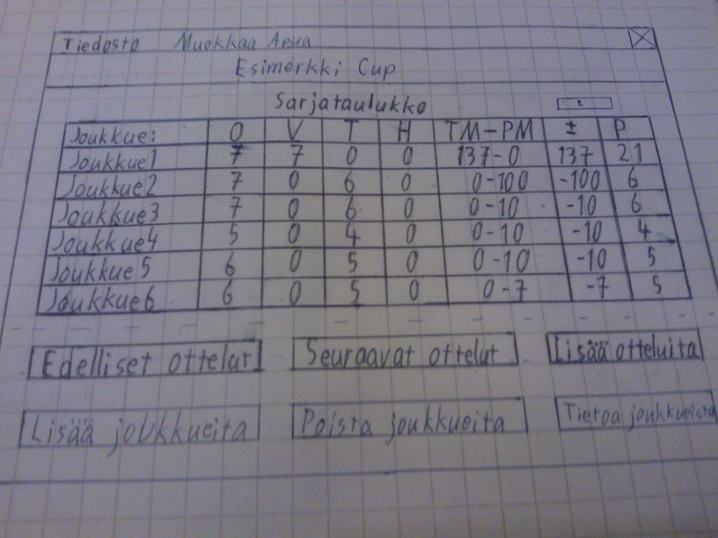 Tiedosto Muokkaa Apua
Esimerkki Cup
Sarjataulukko
Joukkue: O V T H TM-PM ± P
Joukkue1 7 7 0 0 137-0 137 21
Joukkue2 7 0 6 0 0-100 -100 6
Joukkue3 7 0 6 0 0-10 -10 6
Joukkue4 5 0 4 0 0-10 -10 4
Joukkue5 6 0 5 0 0-10 -10 5
Joukkue6 6 0 5 0 0-7 -7 5
Edelliset ottelut Seuraavat ottelut Lisää otteluita
Lisää joukkueita Poista joukkueita Tietoa joukkueista